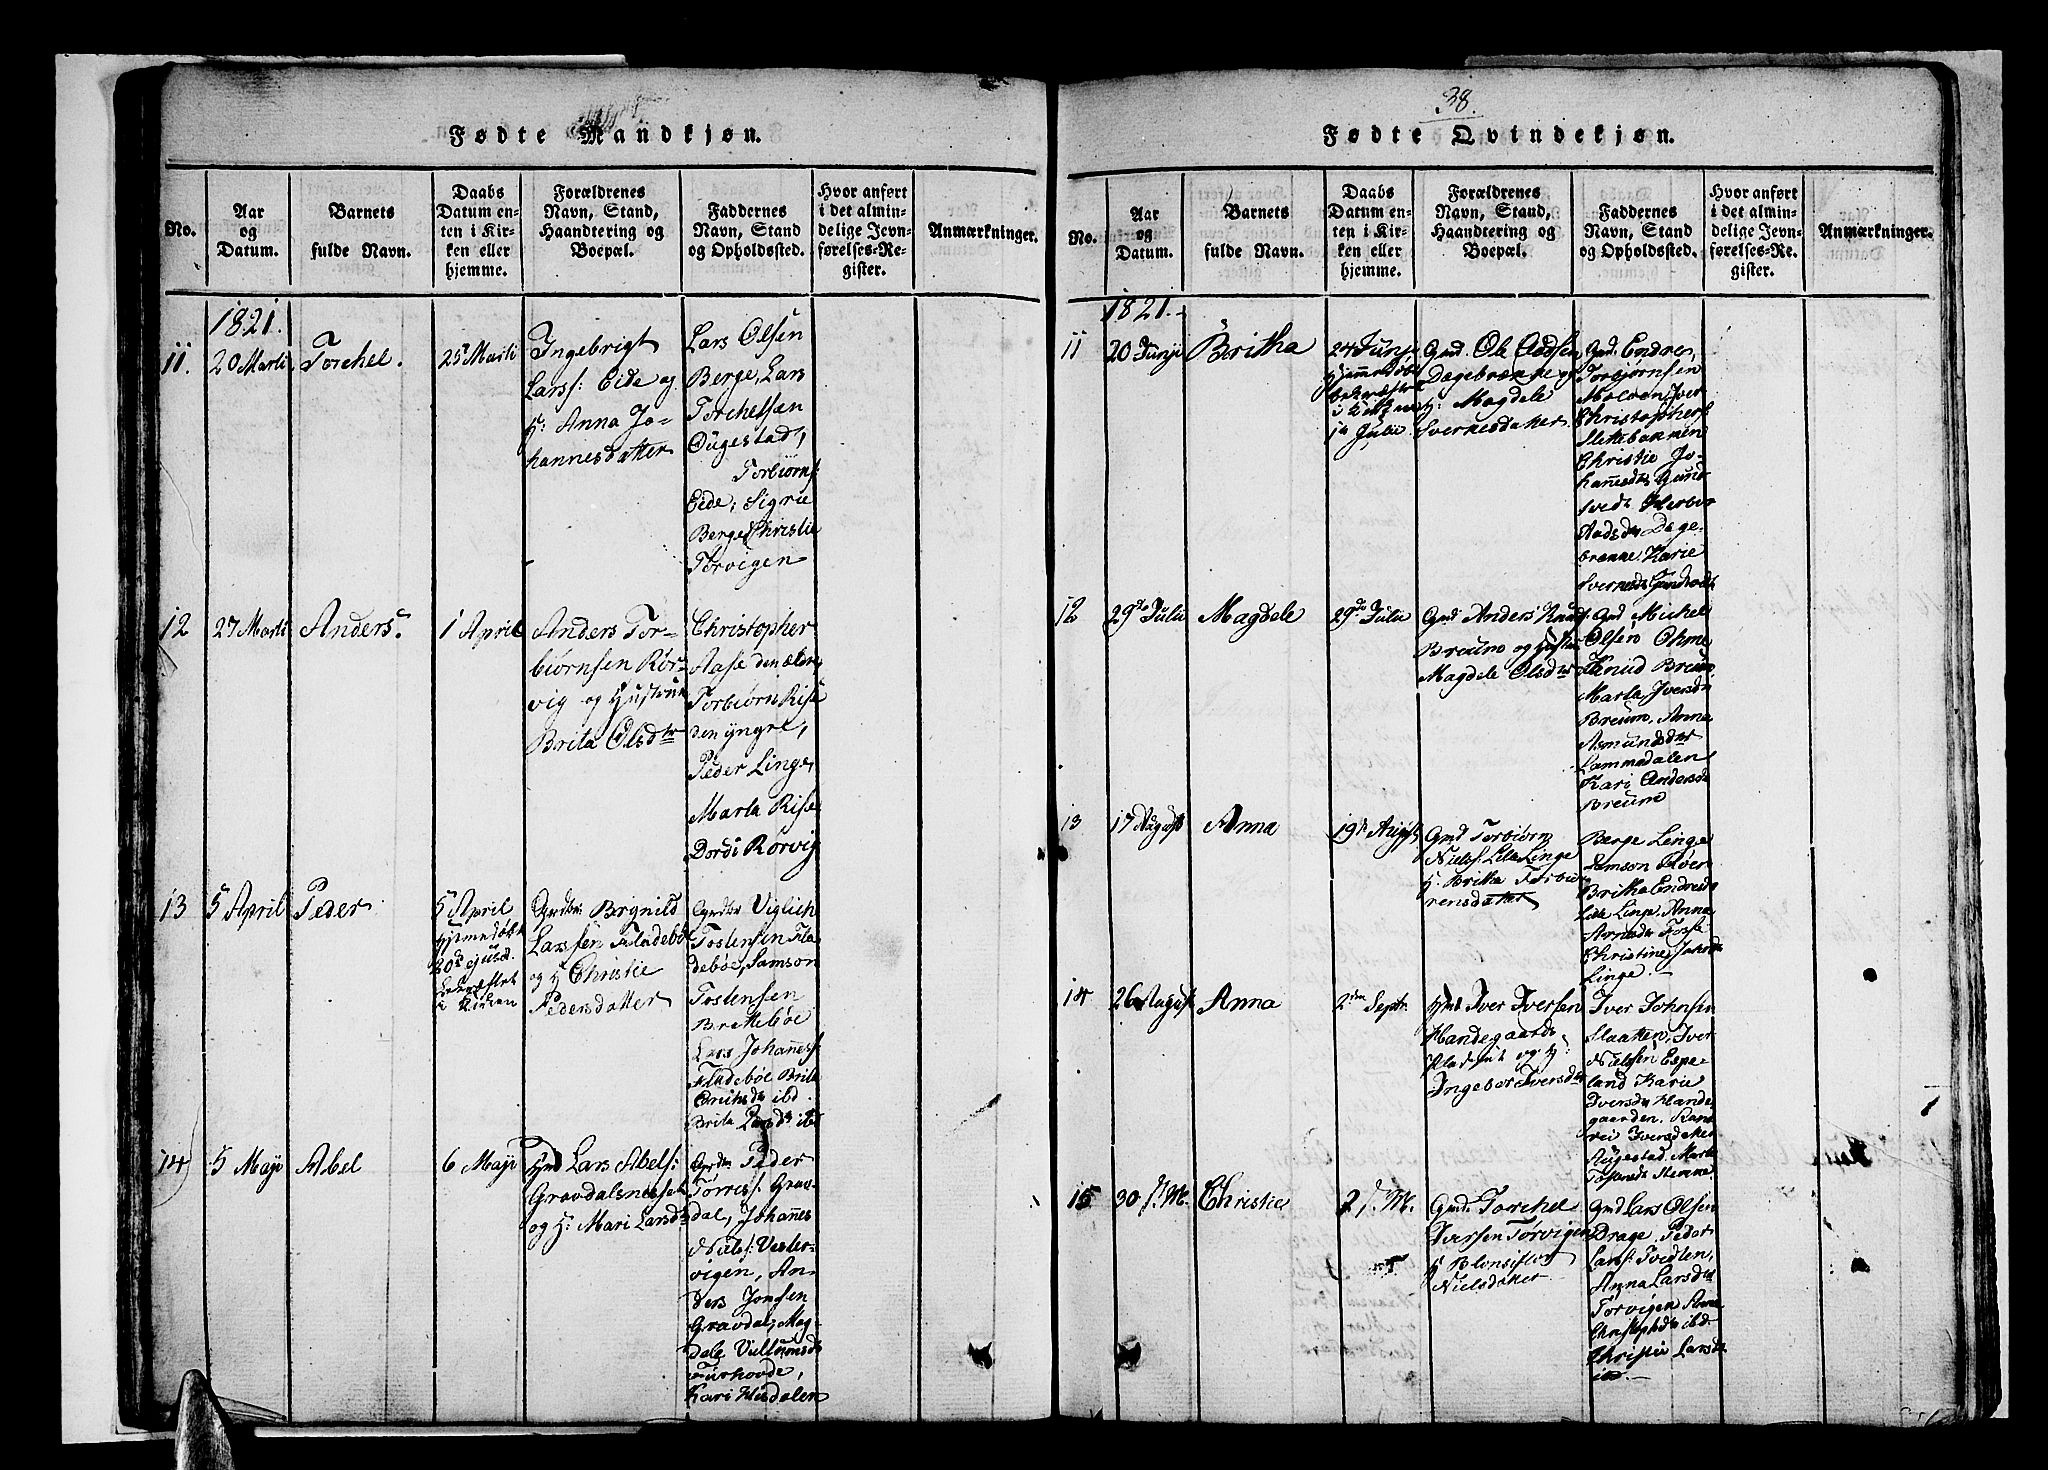 Fødte Mandkjøn.
No.
Aar
og
Datum.
Barnets
fulde Navn.
Daabs
Datum en-
ten i Kir-
ken eller
hjemme.
Forældrenes
Navn, Stand,
Haandtering og
Boepæl.
Faddernes
Navn, Stand
og Opholdssted.
Hvor anført
i det almin-
delige Jevn-
førelses-Re-
gister.
Anmærkninger.
1821.
11.
20 Marti
Torchel.
25 Marti
Ingebrigt
Larss: Eide og
H: Anna Jo-
hannesdatter
Lars Olsen
Berge, Lars
Torchelsen
Øugestad,
Torbiørns:
Eide, Sigrie
Berge, Christie
Torvigen
12
27 Marti
Anders.
1 April
Anders Tor-
biørnsen Rør-
vig og Hustrue
Brita Olsdtr
Christopher
Aase den ældre
Torbiørn Rise
den yngre,
Peder Linge,
Marta Rise
Dordi Rørvig
13
5 April
Peder
5 April
Hjemmedøbt
20d ejusd.
bekræftet
i Kirken
Gmdbr Brynild
Larssen Fladebøe
og H Christie
Pedersdatter
Gmdbr Viglich
Tostensen Fla
debøe, Samson
Tostensen
Brekkebøe
Lars Johaness:
Fladebøe Brite
ibd.
Brita Larsdtr ibd
14
5 Maji
Abel
6 Maji
Hmd Lars Abels:
Gravdalsnesset
og H: Mari Larsdtr
Gmdm Peder
Tørress: Grav-
dal, Johannes
Niels: Vester-
vigen, An-
ders Jonsen
Gravdal, Mag-
dale
Kari Husdalen
38.
Fødte Qvindekjøn.
No.
Aar
og
Datum.
Barnets
fulde Navn.
Daabs
Datum en-
ten i Kir-
ken eller
hjemme.
Forældrenes
Navn, Stand,
Haandtering og
Boepæl.
Faddernes
Navn, Stand
og Opholdssted.
Hvor anført
i det almin-
delige Jevn-
førelses-Re-
gister.
Anmærkninger.
1821.
11
20 Junji
Britha
24 Junj
Hjemmedøbt
bekræftet
i Kirken
1n Julii
Gmd. Ole Aadsen
Dagebrække og
H: Magdele
Iversdatter
Gmd. Endre
Torbjørnsen
Molven, Iver
Christophers:
Slettebakken
Christie Jo-
hanesdtr Gund
Aadsdtr Dage-
Karie
12
29de Julii
Magdele
29de Julii
Gmd Anders Knud
Breum og Hustru
Magdele Olsdtr
Gmd Michel
Olsen
Knud Breum
Marta Iversdtr
Breum, Anna
Asmundsdtr
Lammedalen
Kari Andersdtr
Breum
13
17 August
Anna
19de August
Gmd Torbiørn
Niels: Lile Linge
H. Britha Torbiø
rensdatter
Berge Linge
Samson Øver
Britha Endresd
Lile Linge, Anna
Arnesdtr Fosse
Christine
Linge.
14
26 August
Anna
2den Septr.
Hmd Iver Iversen
Handegaards
Pladset og H:
Ingebor Iversdtr
Iver Johnsen
Slaatten, Iver
Nielsen Espe-
land Karie
Iversdtr Hande
gaarden.
Iversdatter
Augestad Marte
15
30 f. M.
Christie
2 f. M.
Gmd. Torchel
Iversen Tørvigen
H
Nielsdatter
Gmd Lars Olsen
Drage, Peder
Larss: Tveiten,
Anna Larsdtr
Tørvigen
Christophdtr ibd.
Christie Larsdtr
ibd.